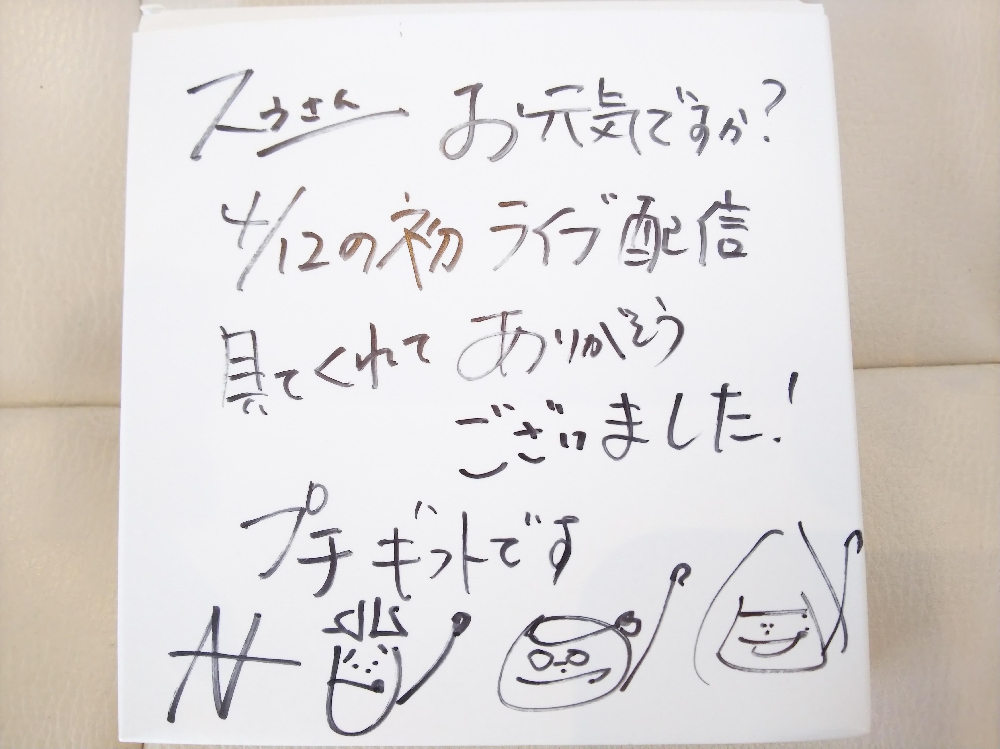 スうさん お元気ですか?
4/12の初ライブ配信
見てくれて ありがとう
ございました!
プチギフトです
N